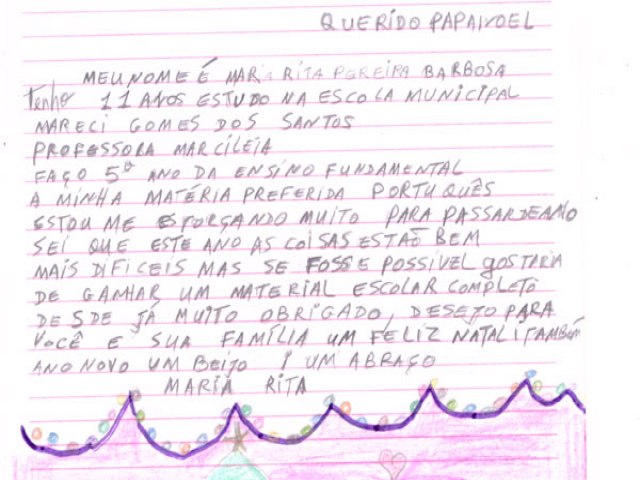 QUERIDO PAPAINOEL
MEU NOME É MARIA RITA PEREIRA BARBOSA
Tenho 11 ANOS ESTUDO NA ESCOLA MUNICIPAL
MARECI GOMES DOS SANTOS
PROFESSORA MARCILEIA
FAÇO 5º ANO DA ENSINO FUNDAMENTAL
A MINHA MATÉRIA PREFERIDA PORTUGUÊS
ESTOU ME ESFORÇANDO MUITO PARA PASSAR DE ANO
SEI QUE ESTE ANO AS COISAS ESTAÕ BEM
MAIS DIFICEIS MAS SE FOSSE POSSIVEL GOSTARIA
DE GANHAR UM MATERIAL ESCOLAR COMPLETO
DESDE JÁ MUITO OBRIGADO, DESEJO PARA
VOCÊ E SUA FAMÍLIA UM FELIZ NATAL TAMBÉM
ANO NOVO UM BEIJO ! UM ABRAÇO
MARIA RITA